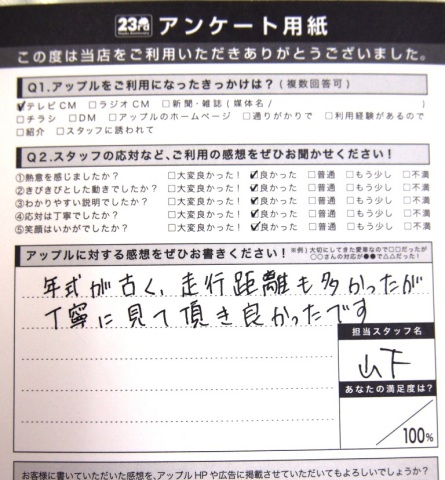 23rd アンケート用紙
この度は当店をご利用いただきありがとうございました。
Q1.アップルをご利用になったきっかけは?(複数回答可)
✓テレビCM □ラジオCM □新聞・雑誌(媒体名/ )
□チラシ □DM □アップルのホームページ □通りがかりで □利用経験があるので
□紹介 □スタッフに誘われて
Q2.スタッフの応対など、ご利用の感想をぜひお聞かせください!
①熱意を感じましたか? □大変良かった! ✓良かった □普通 □もう少し □不満
②きびきびとした動きでしたか? □大変良かった! ✓良かった □普通 □もう少し □不満
③わかりやすい説明でしたか? □大変良かった! ✓良かった □普通 □もう少し □不満
④応対は丁寧でしたか? □大変良かった! ✓良かった □普通 □もう少し □不満
⑤笑顔はいかがでしたか? □大変良かった! ✓良かった □普通 □もう少し □不満
アップルに対する感想をぜひお書きください!
※例)大切にしてきた愛車なので○○だったが
○○さんの対応が●●で△△だった!
年式が古く、走行距離も多かったが
丁寧に見て頂き良かったです
担当スタッフ名
山下
あなたの満足度は?
/100%
お客様に書いていただいた感想を、アップルHPや広告に掲載させていただいてもよろしいでしょうか?